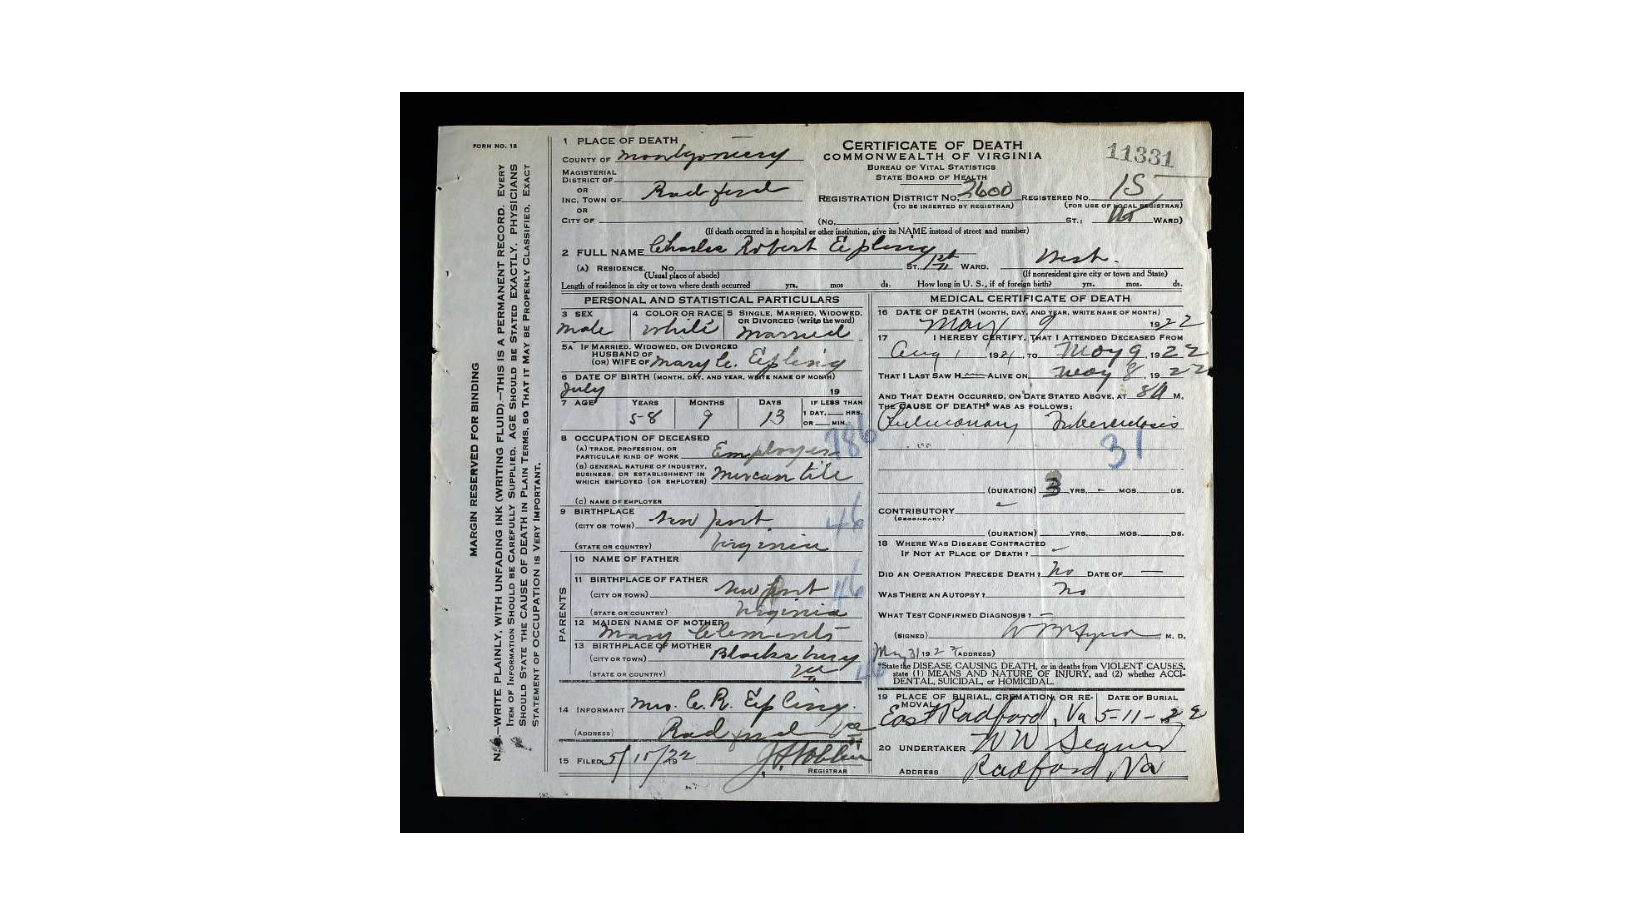 FORM NO. 12
MARGIN RESERVED FOR BINDING
N. B.—WRITE PLAINLY, WITH UNFADING INK (WRITING FLUID).—THIS IS A PERMANENT RECORD. EVERY
ITEM OF INFORMATION SHOULD BE CAREFULLY SUPPLIED. AGE SHOULD BE STATED EXACTLY. PHYSICIANS
SHOULD STATE THE CAUSE OF DEATH IN PLAIN TERMS, SO THAT IT MAY BE PROPERLY CLASSIFIED. EXACT
STATEMENT OF OCCUPATION IS VERY IMPORTANT.
1 PLACE OF DEATH
COUNTY OF Montgomery
MAGISTERIAL
DISTRICT OF
OR
INC. TOWN OF Radford
OR
CITY OF
CERTIFICATE OF DEATH
COMMONWEALTH OF VIRGINIA
BUREAU OF VITAL STATISTICS
STATE BOARD OF HEALTH
11331
REGISTRATION DISTRICT No. 2600 REGISTERED No. 15
(TO BE INSERTED BY REGISTRAR) (FOR USE OF LOCAL REGISTRAR)
(No. ST.; WARD)
(If death occurred in a hospital or other institution, give its NAME instead of street and number)
2 FULL NAME Charles Robert Epling
(A) RESIDENCE. No. ST. 1st WARD. West.
(Usual place of abode) (If nonresident give city or town and State)
Length of residence in city or town where death occurred yrs. mos ds. How long in U. S., if of foreign birth? yrs. mos. ds.
PERSONAL AND STATISTICAL PARTICULARS
3 SEX 4 COLOR OR RACE 5 SINGLE, MARRIED, WIDOWED,
OR DIVORCED (write the word)
Male White Married
5A IF MARRIED, WIDOWED, OR DIVORCED
HUSBAND OF
(OR) WIFE OF Mary C. Epling
6 DATE OF BIRTH (MONTH, DAY, AND YEAR, WRITE NAME OF MONTH)
July 19
7 AGE YEARS MONTHS DAYS IF LESS THAN
58 9 13 1 DAY, HRS.
OR MIN.
8 OCCUPATION OF DECEASED
(A) TRADE, PROFESSION, OR
PARTICULAR KIND OF WORK Employer
(B) GENERAL NATURE OF INDUSTRY,
BUSINESS, OR ESTABLISHMENT IN
WHICH EMPLOYED (OR EMPLOYER) Mercantile
(C) NAME OF EMPLOYER
9 BIRTHPLACE
(CITY OR TOWN) New port 46
(STATE OR COUNTRY) Virginia
PARENTS
10 NAME OF FATHER
11 BIRTHPLACE OF FATHER
(CITY OR TOWN) New port 46
(STATE OR COUNTRY) Virginia
12 MAIDEN NAME OF MOTHER
Mary Clements
13 BIRTHPLACE OF MOTHER
(CITY OR TOWN) Blacksburg
(STATE OR COUNTRY) Va
14 INFORMANT Mrs. C. R. Epling.
(ADDRESS) Radford Va
15 FILED 5/15/22
REGISTRAR
MEDICAL CERTIFICATE OF DEATH
16 DATE OF DEATH (MONTH, DAY, AND YEAR, WRITE NAME OF MONTH)
May 9 1922
17 I HEREBY CERTIFY, THAT I ATTENDED DECEASED FROM
Aug 1, 1921, TO May 9, 1922
THAT I LAST SAW H ALIVE ON May 8, 1922
AND THAT DEATH OCCURRED, ON DATE STATED ABOVE, AT 8A M.
THE CAUSE OF DEATH* WAS AS FOLLOWS:
Pulmonary Tuberculosis
31
(DURATION) 3 YRS. - MOS. DS.
CONTRIBUTORY
(SECONDARY)
(DURATION) YRS. MOS. DS.
18 WHERE WAS DISEASE CONTRACTED
IF NOT AT PLACE OF DEATH?
DID AN OPERATION PRECEDE DEATH? No DATE OF —
WAS THERE AN AUTOPSY? No
WHAT TEST CONFIRMED DIAGNOSIS? —
(SIGNED) M. D.
May 31 1922 (ADDRESS)
*State the DISEASE CAUSING DEATH, or in deaths from VIOLENT CAUSES,
state (1) MEANS AND NATURE OF INJURY, and (2) whether ACCI-
DENTAL, SUICIDAL, or HOMICIDAL.
19 PLACE OF BURIAL, CREMATION, OR RE-
MOVAL DATE OF BURIAL
East Radford, Va 5-11-22
20 UNDERTAKER
ADDRESS Radford, Va